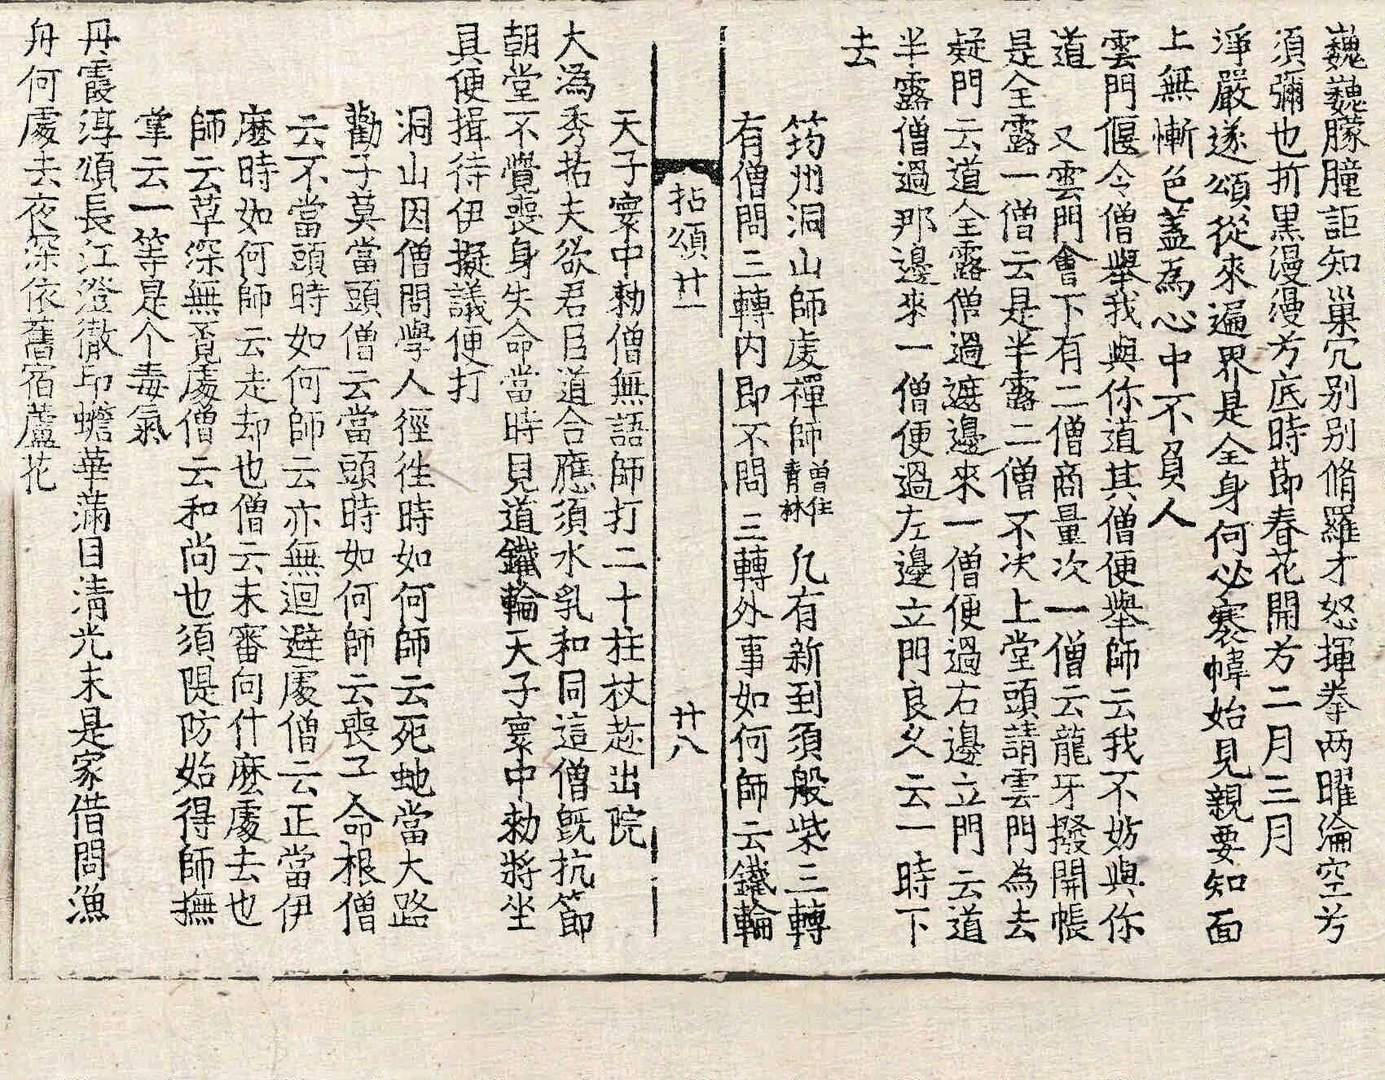 巍巍朦朣詎知巢穴别别脩羅才怒揮拳两曜淪空兮
須彌也折黒漫漫兮底時莭春花開兮二月三月
淨嚴遂頌從來遍界是全身何必褰幃始見親要知面
上無慚色蓋為心中不負人
雲門偃令僧舉我與你道其僧便舉師云我不妨與你
道　又雲門會下有二僧商量次一僧云龍牙撥開帳
是全露一僧云是半露二僧不決上堂頭請雲門為去
疑門云道全露僧過遮邊來一僧便過右邊立門云道
半露僧過那邊來一僧便過左邊立門良久云一時下
去
筠州洞山師虔禪師曾住青林　凡有新到須般柴三轉
有僧問三轉内即不問三轉外事如何師云鐵輪
拈頌廿一　廿八
天子寰中勑僧無語師打二十拄杖趂出院
大溈秀拈夫欲君臣道合應須水乳和同這僧旣抗節
朝堂不覺喪身失命當時見道鐵輪天子寰中勑將坐
具便揖待伊擬議便打
洞山因僧問學人徑徃時如何師云死虵當大路
勸子莫當頭僧云當頭時如何師云喪子命根僧
云不當頭時如何師云亦無迴避處僧云正當伊
麽時如何師云走却也僧云未審向什麽處去也
師云草深無覔處僧云和尚也須隄防始得師撫
掌云一等是个毒氣
丹霞淳頌長江澄徹印蟾華滿目清光未是家借問漁
舟何處去夜深依舊宿蘆花